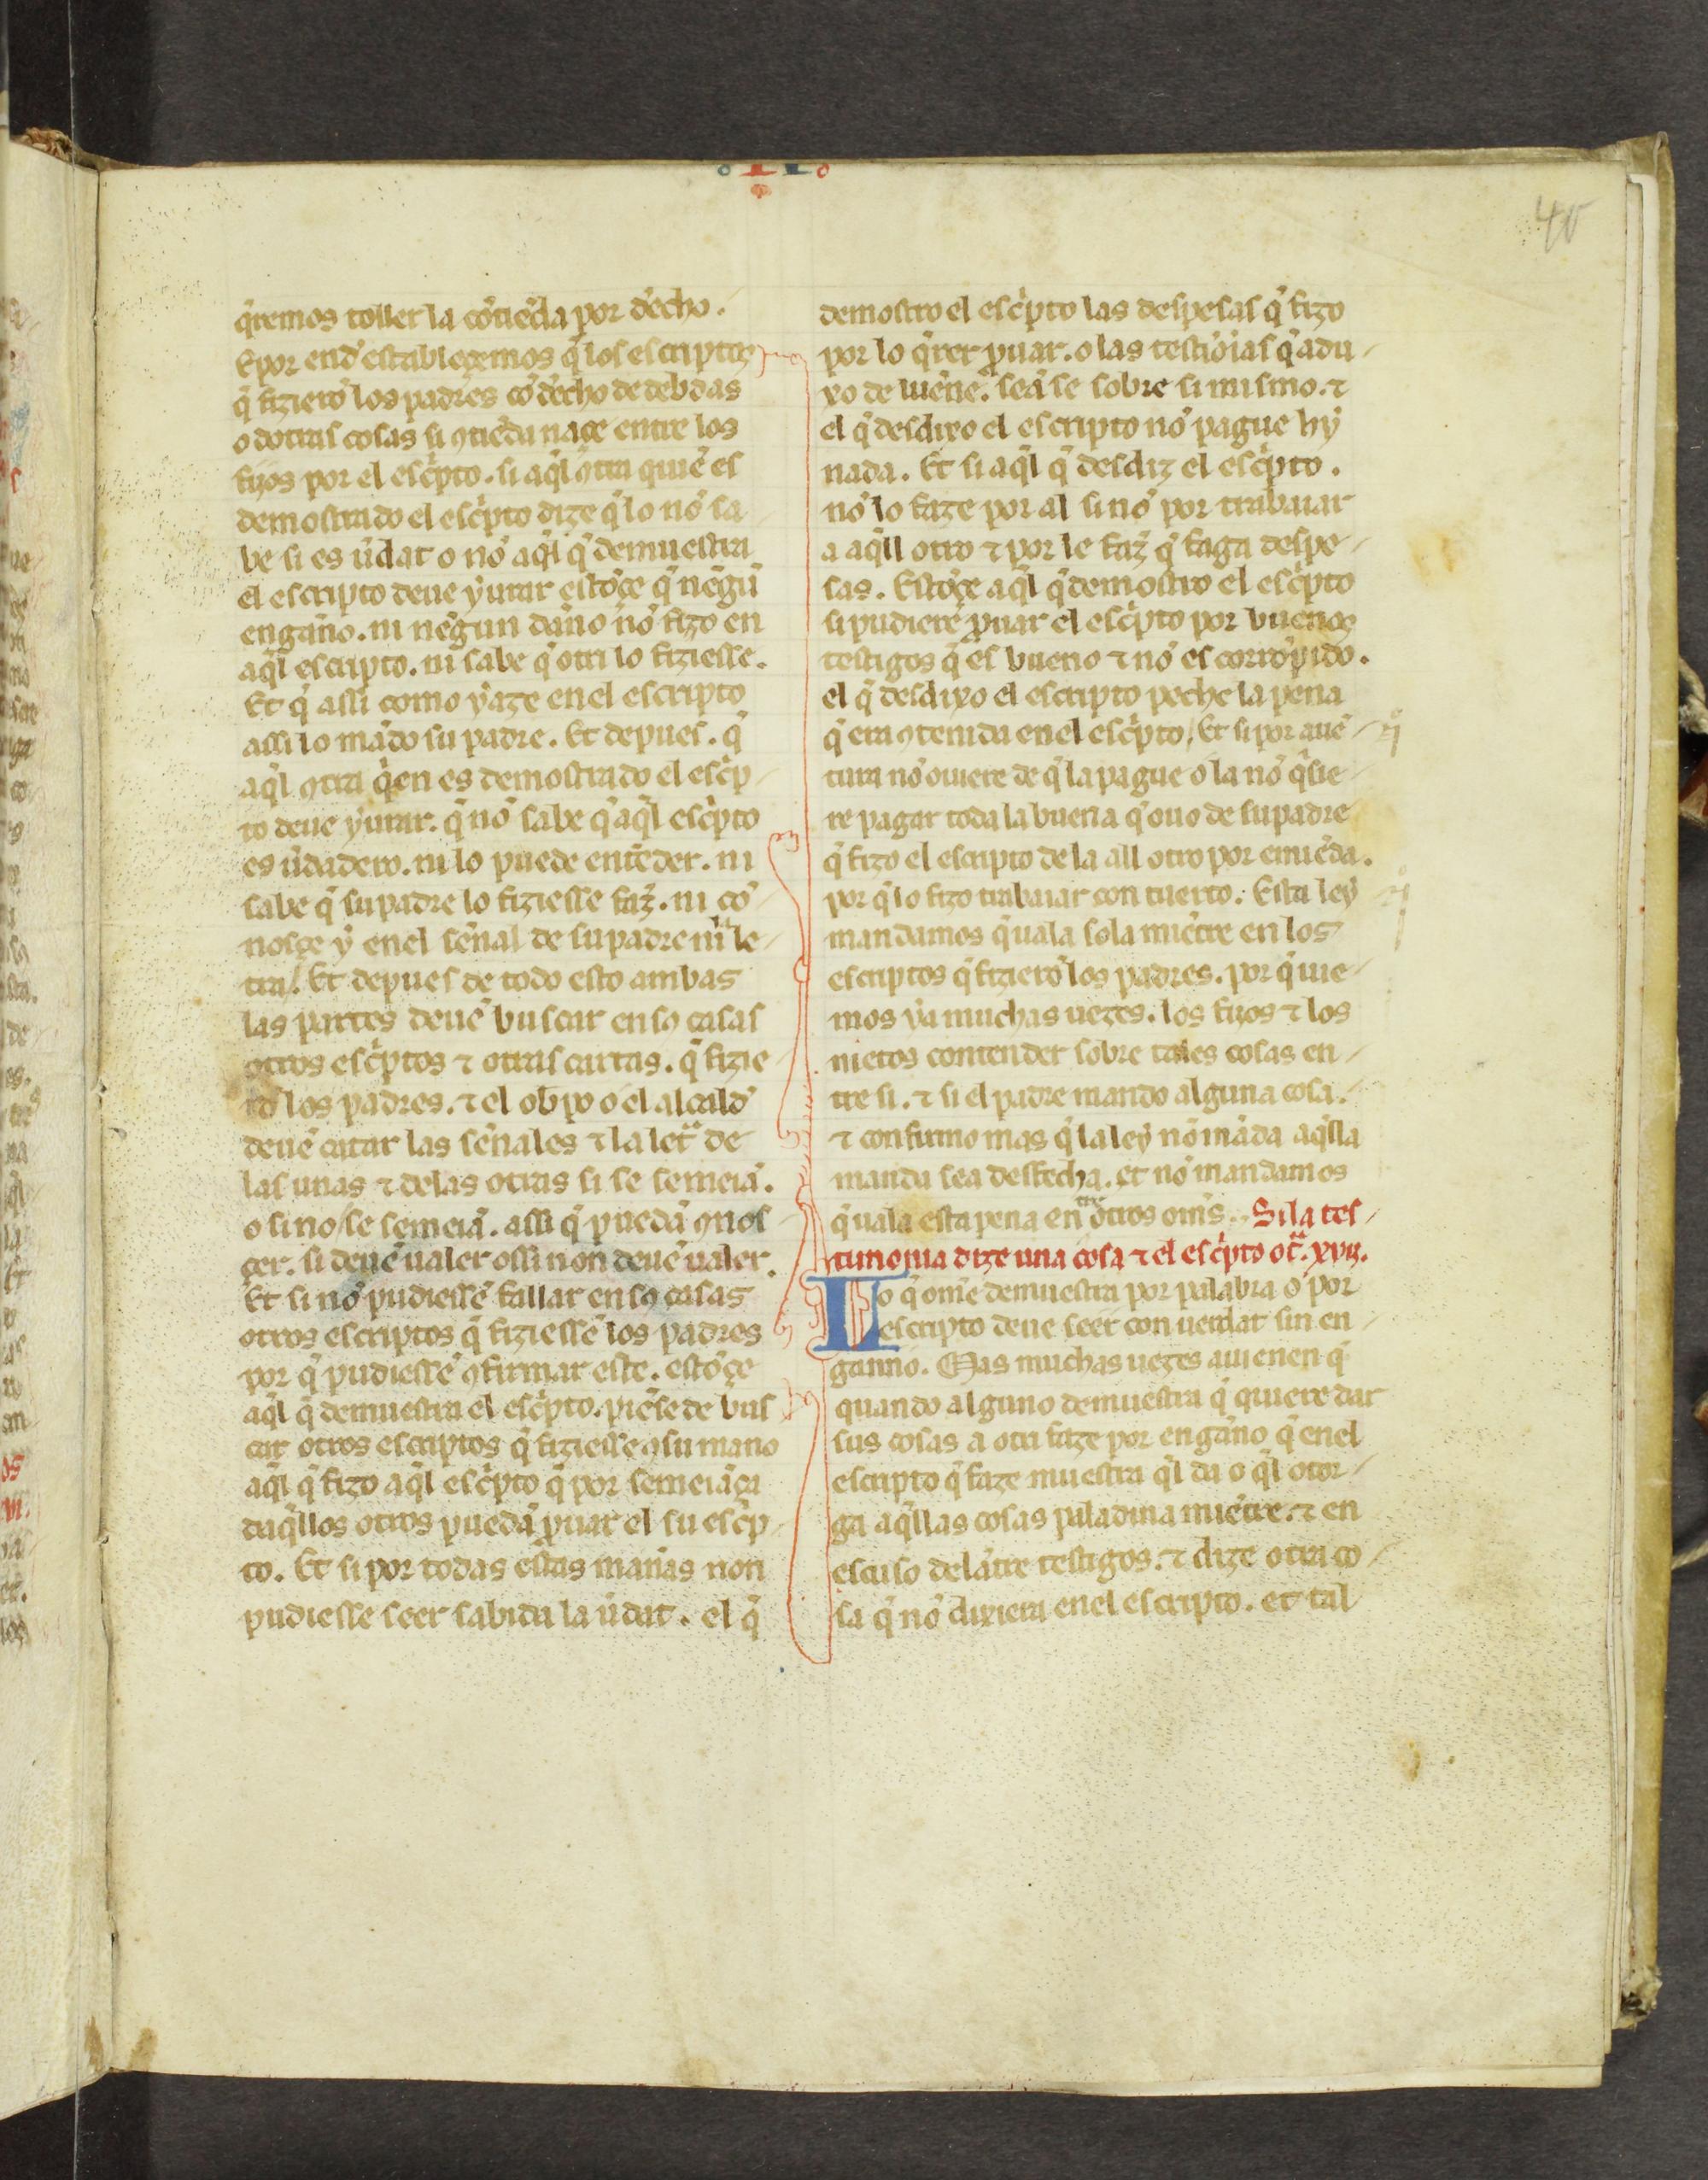 II
40
q̃remos toller la cõtiẽda por dẽcho.
Epor end̃ establecemos q̃ los escriptos
q̃ fizierõ los padres cõ dẽcho de debdas
o dotras cosas si ꝯtiẽda naçe entre los
fijos por el esc̃pto. si aq̃l ꝯtra quiẽ es
demostrado el esc̃pto dize q̃ lo nõ sa
be si es ũdat o nõ aq̃l q̃ demuestra
el escripto deue yurar estõçe q̃ nẽgũ
engãno. ni nẽgun dãno nõ fizo en
aq̃l escripto. ni sabe q̃ otri lo fiziesse.
Et q̃ assi como yaze en el escripto
assi lo mãdo su padre. Et depues. q̃
aq̃l ꝯtra q̃en es demostrado el esc̃p
to deue yurar. q̃ nõ sabe q̃ aq̃l esc̃pto
es ũdadero. ni lo puede entẽder. ni
sabe q̃ su padre lo fiziesse faz̃. ni co
nosçe y en el sẽnal de su padre ni la le
tra. Et depues de todo esto ambas
las partes deuẽ buscar en sꝯ casas
otros esc̃ptos ⁊ otras cartas. q̃ fizie
rõ los padres. ⁊ el obpo o el alcald̃
deuẽ catar las sẽnales ⁊ la let̃ de
las unas ⁊ delas otras si se semeiã.
o si no se semeiã. assi q̃ puedã ꝯnos
çer. si deuẽ ualer ossi non deuẽ ualer.
Et si nõ pudiessẽ fallar en sꝯ casas
otros escriptos q̃ fiziessẽ los padres
por q̃ pudiessẽ ꝯfirmar este. estõçe
aq̃l q̃ demuestra el esc̃pto. piẽse de bus
car otros escriptos q̃ fiziesse ꝯ su mano
aq̃l q̃ fizo aq̃l esc̃pto q̃ por semeiãça
daq̃llos otros puedã ꝓuar el su esc̃p
to. Et si por todas estas mañas non
pudiesse seer sabida la ũdat. el q̃
demostro el esc̃pto las despesas q̃ fizo
por lo q̃rer ꝓuar. o las testiõias q̃ adu
xo de luẽne. seã se sobre si mismo. ⁊
el q̃ desdixo el escripto nõ pague hy
nada. Et si aq̃l q̃ desdiz el esc̃pto.
nõ lo faze por al sinõ por trabaiar
a aq̃ll otro ⁊ por le faz̃ q̃ faga despe
sas. Estõçe aq̃l q̃ demostro el esc̃pto
si pudiere ꝓuar el esc̃pto por buenos
testigos q̃ es bueno ⁊ nõ es corrõpido.
el q̃ desdixo el escripto peche la pena
q̃ era ꝯtenida en el esc̃pto. Et si por auẽ
tura nõ ouiere de q̃ la pague o la nõ q̃sie
re pagar toda la buena q̃ ouo de su padre
q̃ fizo el escripto de la all otro por emiẽda.
por q̃ lo fizo trabaiar con tuerto. Esta ley
mandamos q̃ uala sola miẽtre en los
escriptos q̃ fizierõ los padres. por q̃ uie
mos ya muchas uezes. los fijos ⁊ los
nietos contender sobre tales cosas en
tre si. ⁊ si el padre mando alguna cosa.
⁊ confirmo mas q̃ la ley nõ mãda aq̃lla
manda sea desfecha. et nõ mandamos
q̃ uala esta pena en tre otros oms̃. Si la tes
timonia dize una cosa ⁊ el esc̃pto ot̃. xvij.
Lo q̃ ome demuestra por palabra o por
escripto deue seer con uerdat sin en
ganno. Mas muchas uezes auienen q̃
quando alguno demuestra q̃ quiere dar
sus cosas a otri faze por engãno q̃ en el
escripto q̃ faze muestra q̃l da o q̃l otor
ga aq̃llas cosas paladina miẽtre. ⁊ en
escuso delãtre testigos. ⁊ dize otra co
sa q̃ nõ dixiera en el escripto. et tal